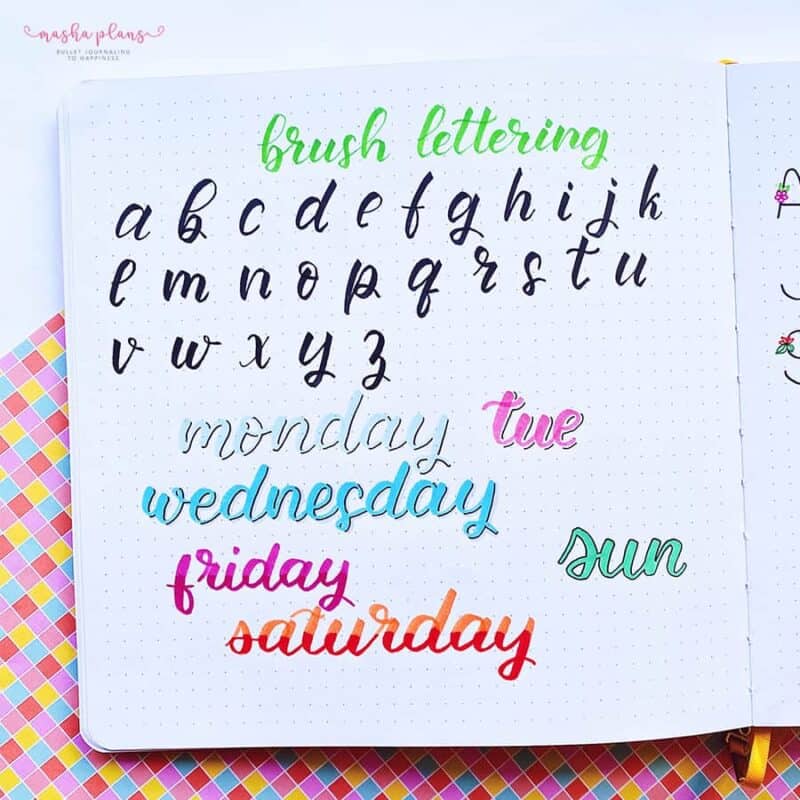 masha plans
BULLET JOURNALING
TO HAPPINESS
brush lettering
a b c d e f g h i j k
l m n o p q r s t u
v w x y z
monday tue
wednesday
sun
friday
saturday